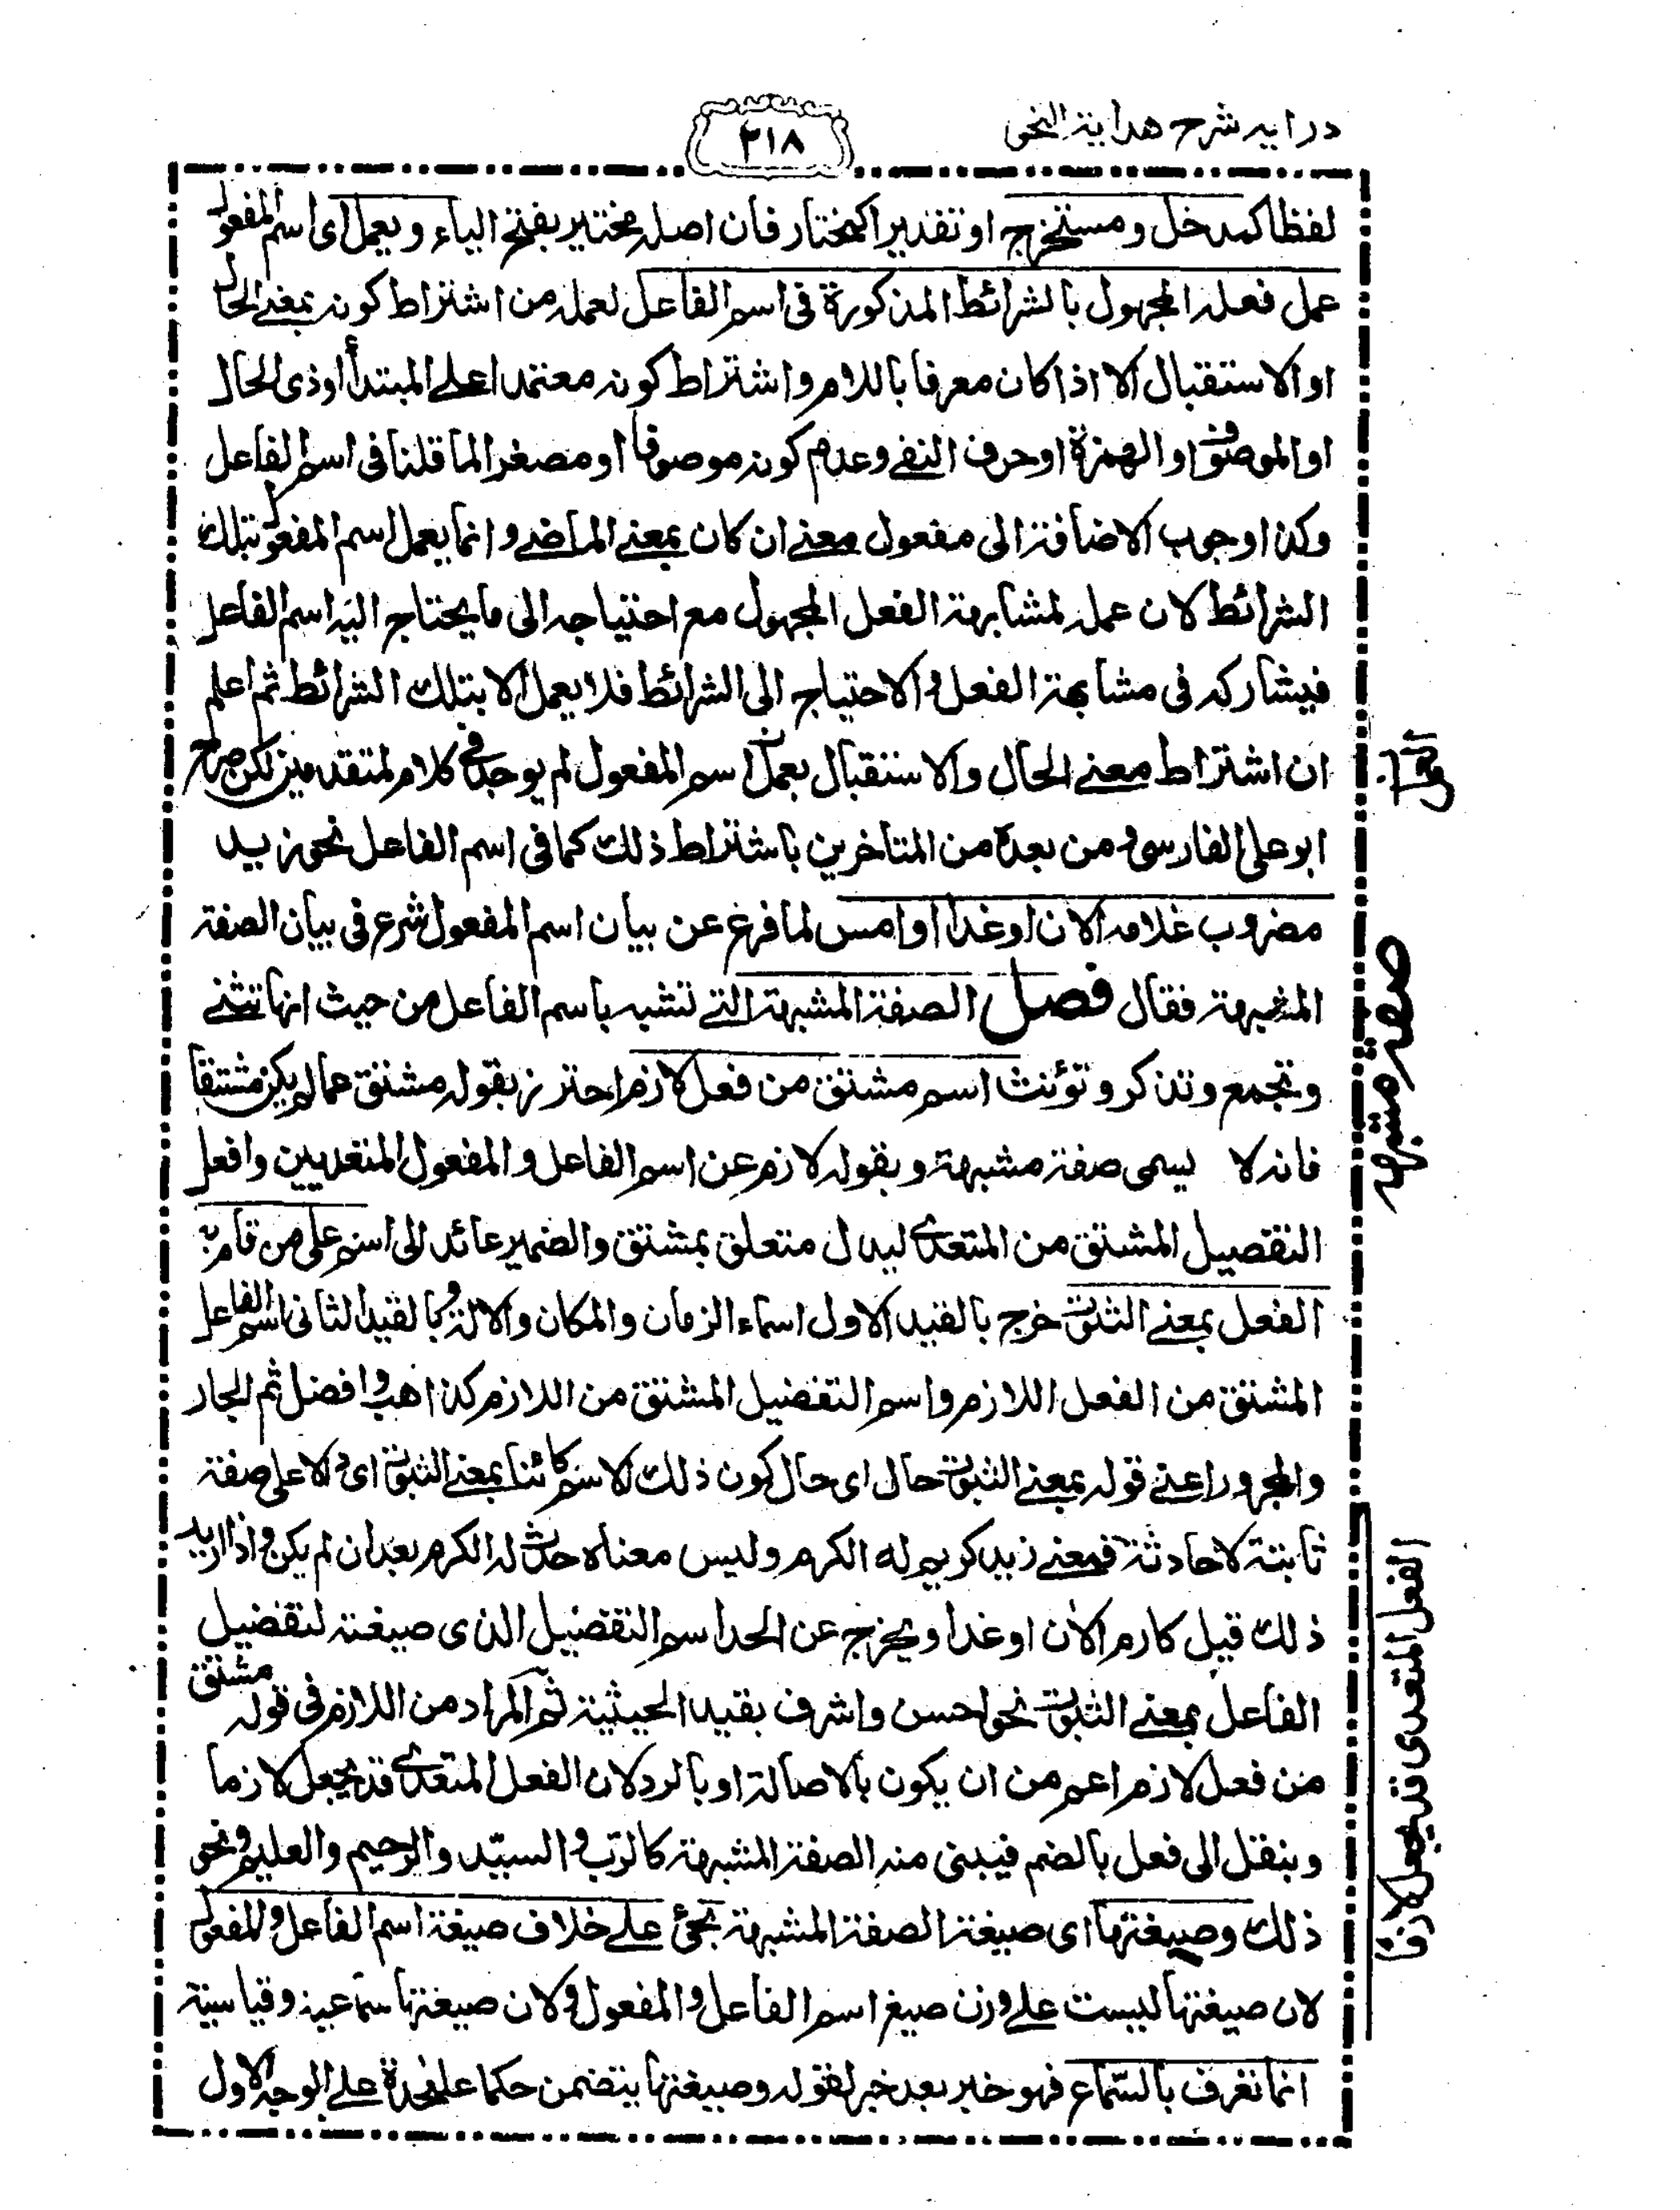 درايه شرح هداية النحو
٢١٨
لفظا كمدخل ومستخرج او تقديرا كمختار فان اصله مختير بفتح الياء ويعمل اى اسم المفعول
عمل فعله المجهول بالشرائط المذكورة فى اسم الفاعل لعمله من اشتراط كونه بمعنے الحال
او الاستقبال الا اذا كان معرفا باللام واشتراط كونه معتمدا علے المبتدأ او ذى الحال
او الموصوف او الهمزة او حرف النفے وعدم كونه موصوفا او مصغرا لما قلنا فى اسم الفاعل
وكذا وجوب الاضافة الى مفعول معنے ان كان بمعنے الماضے وانما يعمل اسم المفعول بتلك
الشرائط لان عمله لمشابهة الفعل المجهول مع احتياجه الى ما يحتاج اليه اسم الفاعل
فيشاركه فى مشابهة الفعل والاحتياج الى الشرائط فلا يعمل الا بتلك الشرائط ثم اعلم
ان اشتراط معنے الحال والاستقبال بعمل اسم المفعول لم يوجد فى كلام المتقدمين لكن صرح
ابو على الفارسى ومن بعده من المتاخرين باشتراط ذلك كما فى اسم الفاعل نحو زيد
مضروب غلامه الان او غدا او امس لما فرغ عن بيان اسم المفعول شرع فى بيان الصفة
المشبهة فقال فصل الصفة المشبهة التے تشبه باسم الفاعل من حيث انها تثنے
وتجمع وتذكر وتؤنث اسم مشتق من فعل لازم احترز بقوله مشتق عما لم يكن مشتقا
فانه لا يسمى صفة مشبهة وبقوله لازم عن اسم الفاعل والمفعول المتعديين وافعل
التفصيل المشتق من المتعدى ليدل متعلق بمشتق والضمير عائد الى اسم على من قام به
الفعل بمعنے الثبوت خرج بالقيد الاول اسماء الزمان والمكان والالة وبالقيد الثانى اسم الفاعل
المشتق من الفعل اللازم واسم التفضيل المشتق من اللازم كذاهب وافضل ثم الجار
والمجرور اعنے قوله بمعنے الثبوت حال اى حال كون ذلك الاسم كائنا بمعنے الثبوت اى دالا على صفة
ثابتة لا حادثة فمعنے زيد كريم له الكرم وليس معناه حدث له الكرم بعد ان لم يكن واذا اريد
ذلك قيل كارم الان او غدا ويخرج عن الحد اسم التفضيل الذى صيغته لتفضيل
الفاعل بمعنے الثبوت نحو احسن واشرف بقيد الحيثية ثم المراد من اللازم فى قوله مشتق
من فعل لازم اعم من ان يكون بالاصالة او بالرد لان الفعل المتعدى قد يجعل لازما
وينقل الى فعل بالضم فيبنى منه الصفة المشبهة كالرب والسيّد والرحيم والعليم ونحو
ذلك وصيغتها اى صيغة الصفة المشبهة تجئ علے خلاف صيغة اسم الفاعل والمفعول
لان صيغتها ليست علے وزن صيغ اسم الفاعل والمفعول ولان صيغتها سماعية وقياسية
انما تعرف بالسّماع فهو خبر بعد خبر لقوله وصيغتها يتضمن حكما على حدة علے الوجه الاول
صفة مشبهه
الفعل المتعدى قد يجعل لازما